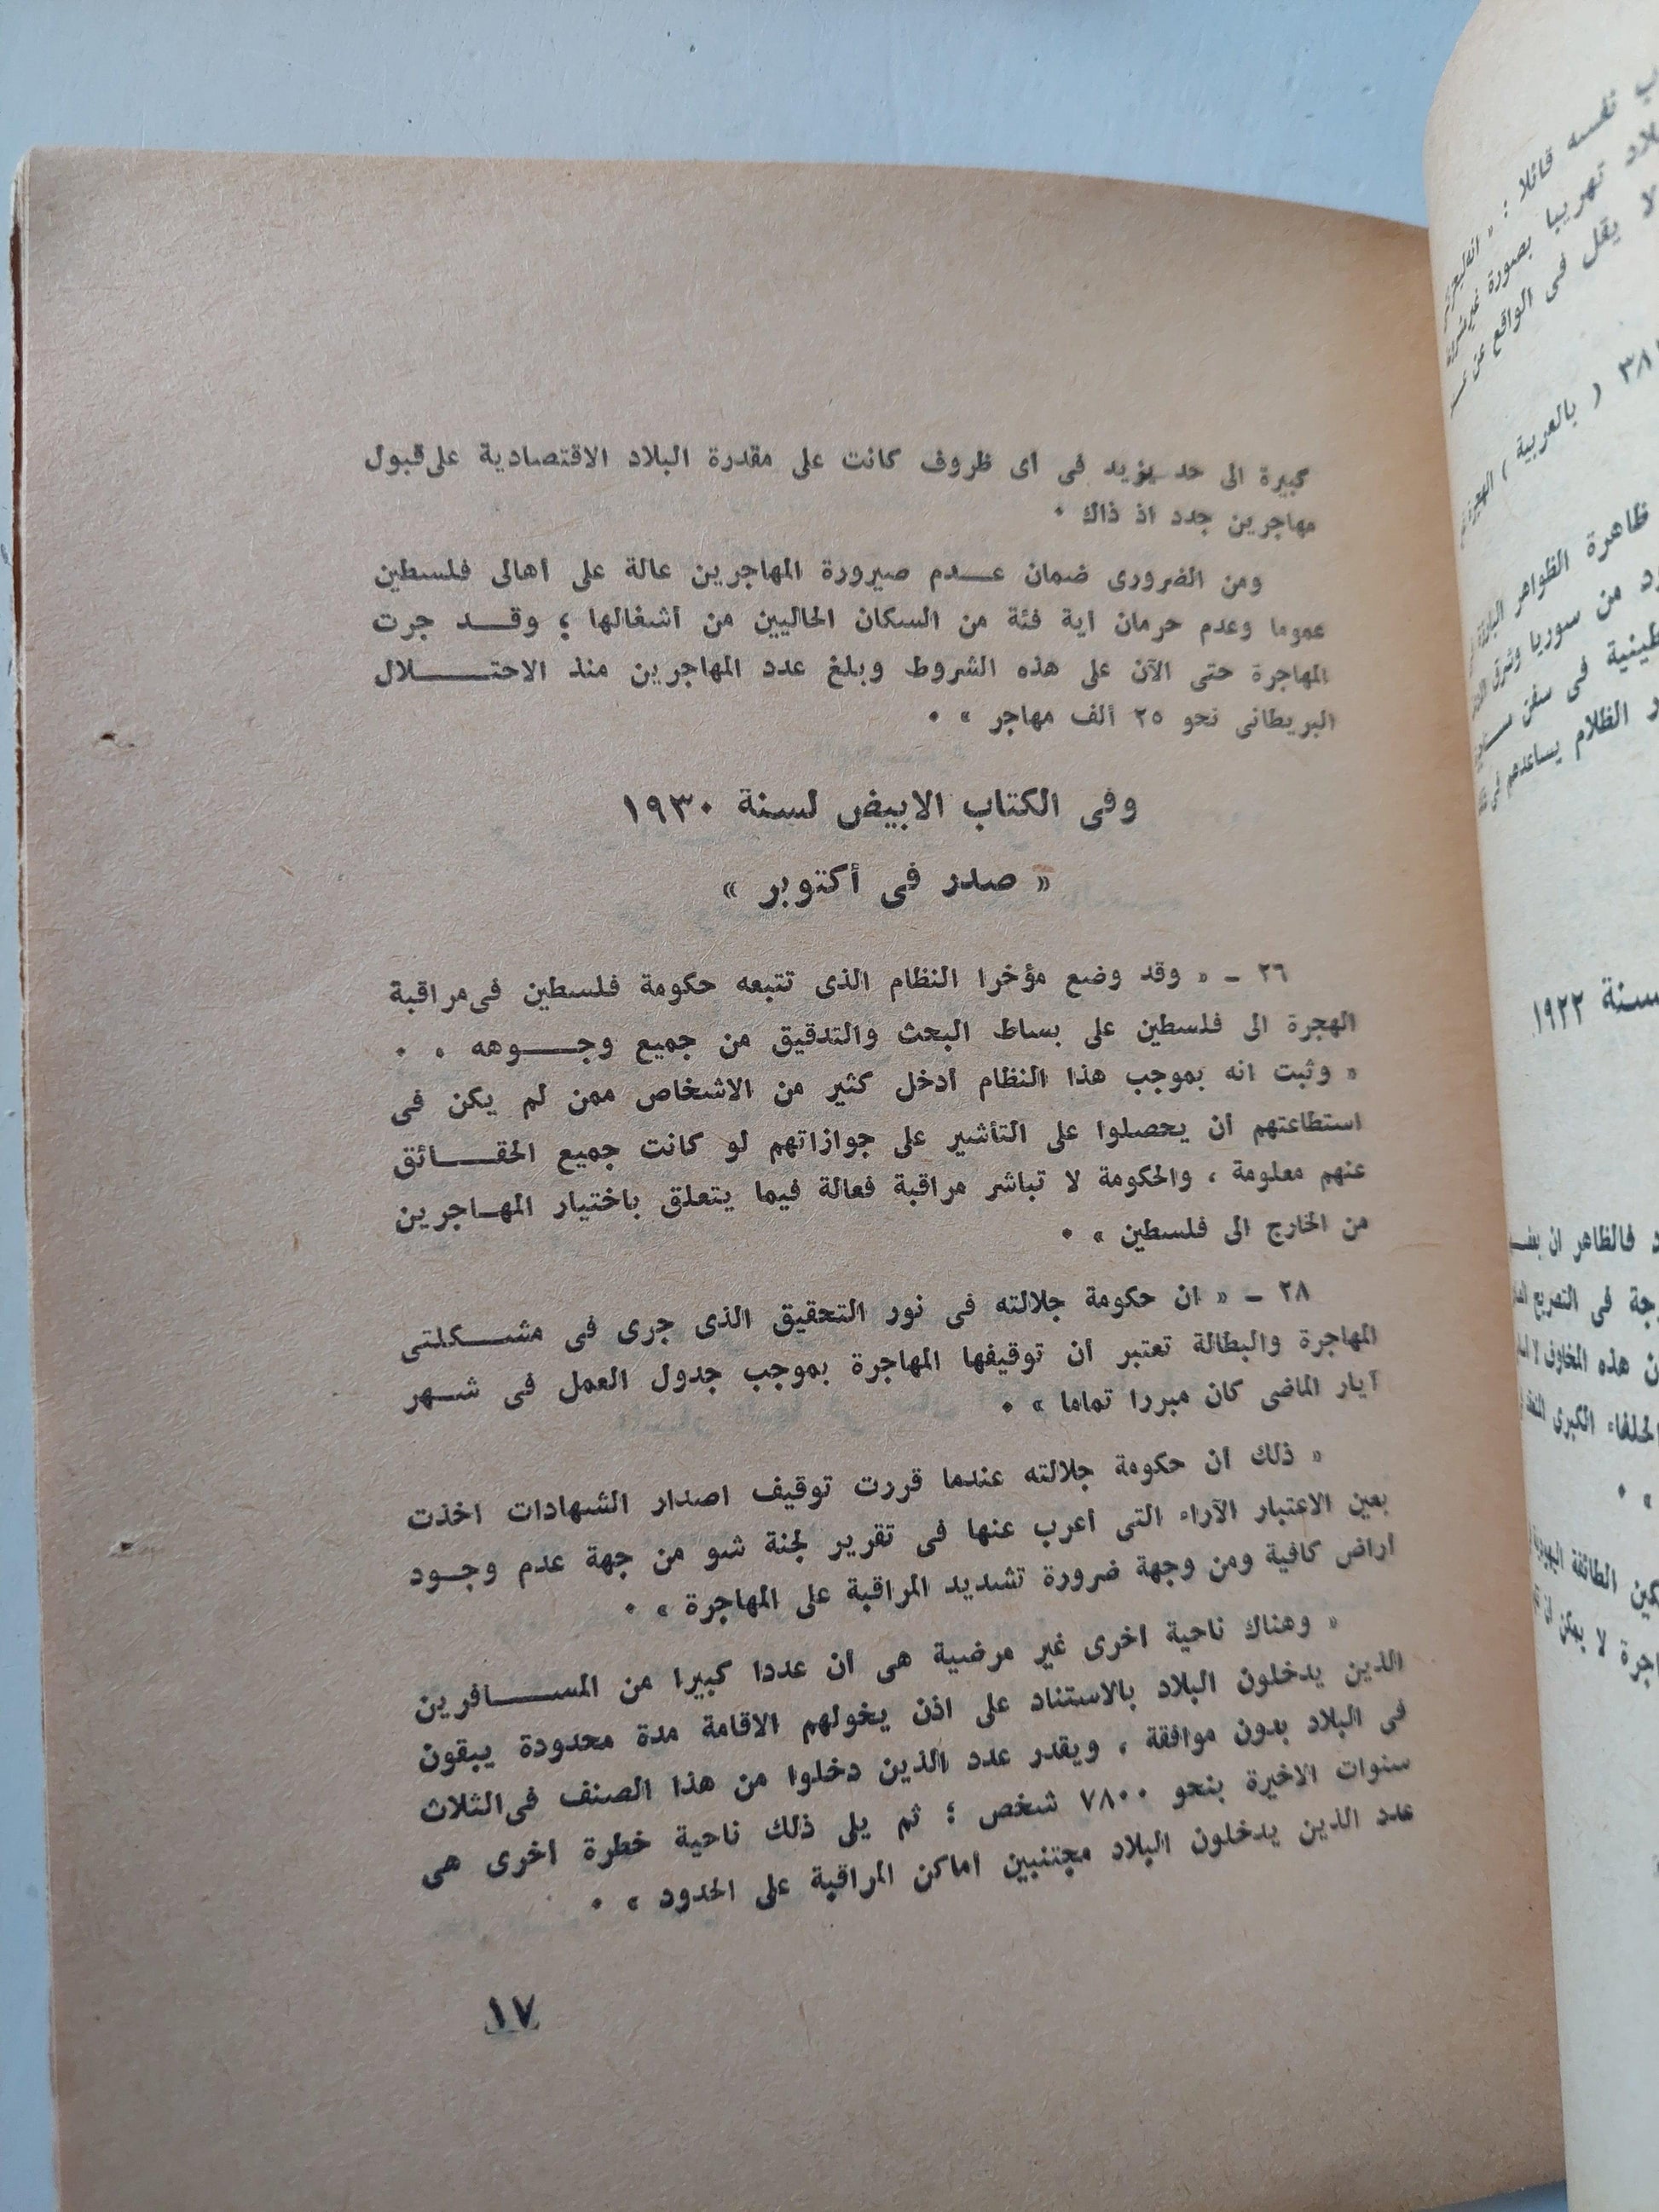 كبيرة الى حد يزيد فى اى ظروف كانت على مقدرة البلاد الاقتصادية على قبول
مهاجرين جدد اذ ذاك .
ومن الضرورى ضمان عـــدم صيرورة المهاجرين عالة على أهالى فلسطين
عموما وعدم حرمان اية فئة من السكان الحاليين من أشغالها ؛ وقــد جرت
المهاجرة حتى الآن على هذه الشروط وبلغ عدد المهاجرين منذ الاحتـــلال
البريطانى نحو ٢٥ ألف مهاجر » .
وفى الكتاب الابيض لسنة ١٩٣٠
« صدر فى أكتوبر »
٢٦ ـ « وقد وضع مؤخرا النظام الذى تتبعه حكومة فلسطين فى مراقبة
الهجرة الى فلسطين على بساط البحث والتدقيق من جميع وجـــوهه . .
« وثبت انه بموجب هذا النظام أدخل كثير من الاشخاص ممن لم يكن فى
استطاعتهم أن يحصلوا على التأشير على جوازاتهم لو كانت جميع الحقـــائق
عنهم معلومة ، والحكومة لا تباشر مراقبة فعالة فيما يتعلق باختيار المهـاجرين
من الخارج الى فلسطين » .
٢٨ ـ « ان حكومة جلالته فى نور التحقيق الذى جرى فى مشـــكلتى
المهاجرة والبطالة تعتبر أن توقيفها المهاجرة بموجب جدول العمل فى شــهر
آيار الماضى كان مبررا تماما » .
« ذلك ان حكومة جلالته عندما قررت توقيف اصدار الشهادات اخذت
بعين الاعتبار الآراء التى أعرب عنها فى تقرير لجنة شو من جهة عدم وجــود
اراض كافية ومن وجهة ضرورة تشديد المراقبة على المهاجرة » .
« وهناك ناحية اخرى غير مرضية هى ان عددا كبيرا من المســـافرين
الذين يدخلون البلاد بالاستناد على اذن يخولهم الاقامة مدة محدودة يبقون
فى البلاد بدون موافقة ، ويقدر عدد الذين دخلوا من هذا الصنف فى الثلاث
سنوات الاخيرة بنحو ٧٨٠٠ شخص ؛ ثم يلى ذلك ناحية خطرة اخرى هى
عدد الذين يدخلون البلاد مجتنبين اماكن المراقبة على الحدود » .
١٧
نفسه قائلا : «
تهريبا بصورة
لا يقل فى الواقع عن
( بالعربية )
ظاهرة الظواهر
من سوريا وشرق
فى سفن
الظلام يساعدهم فى
سنة ١٩٢٢
فالظاهر ان
فى التصريح
هذه المخاوف لا
الحلفاء الكبرى
الطائفة
لا يمكن ان